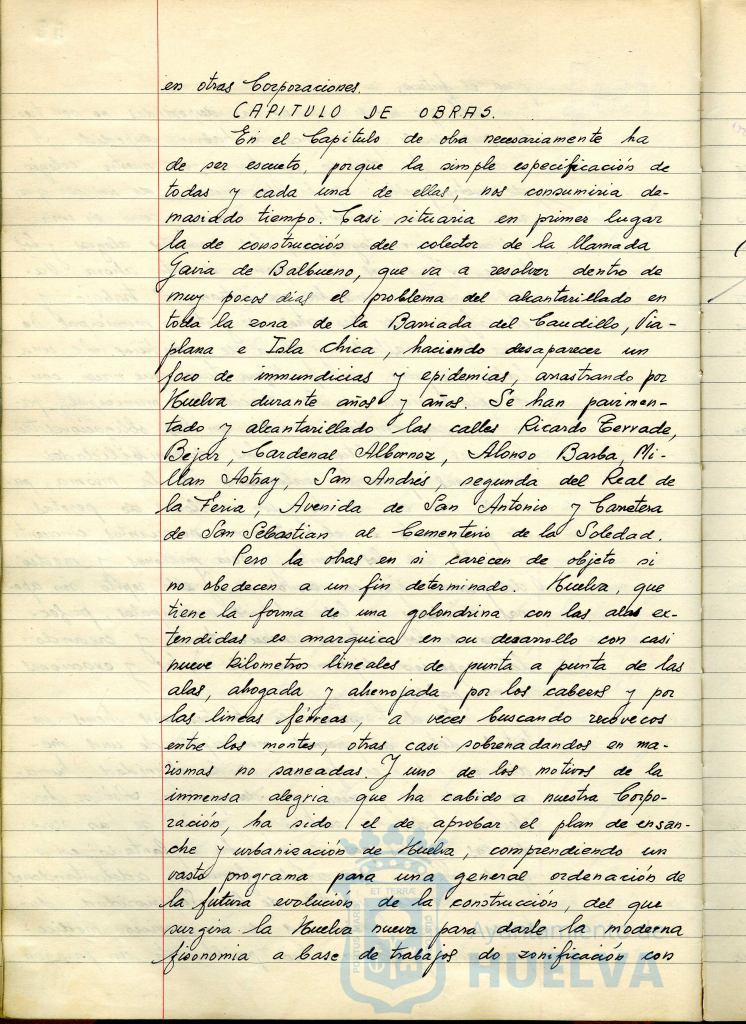 en otras Corporaciones.
CAPITULO DE OBRAS.
En el Capitulo de obra necesariamente ha
de ser escueto, porque la simple especificación de
todas y cada una de ellas, nos consumiria de-
masiado tiempo. Casi situaria en primer lugar
la de construcción del colector de la llamada
Gavia de Balbueno, que va a resolver dentro de
muy pocos dias el problema del alcantarillado en
toda la zona de la Barriada del Caudillo, Via-
plana e Isla Chica, haciendo desaparecer un
foco de inmundicias y epidemias, arrastrando por
Huelva durante años y años. Se han pavimen-
tado y alcantarillado las calles Ricardo Terrade,
Bejar, Cardenal Albornoz, Alonso Barba, Mi-
llan Astray, San Andrés, segunda del Real de
la Feria, Avenida de San Antonio y Carretera
de San Sebastian al Cementerio de la Soledad.
Pero la obras en si carecen de objeto si
no obedecen a un fin determinado. Huelva, que
tiene la forma de una golondrina con las alas ex-
tendidas es anarquica en su desarrollo con casi
nueve kilometros lineales de punta a punta de las
alas, ahogada y aherrojada por los cabezos y por
las lineas férreas, a veces buscando recovecos
entre los montes, otras casi sobrenadandos en ma-
rismas no saneadas. Y uno de los motivos de la
inmensa alegria que ha cabido a nuestra Corpo-
ración, ha sido el de aprobar el plan de ensan-
che y urbanización de Huelva, comprendiendo un
vasto programa para una general ordenación de
la futura evolución de la construcción, del que
surgira la Huelva nueva para darle la moderna
fisonomia a base de trabajos do zonificación con
PORTUS MARIS ET TERRAE CUSTODIA
Ayuntamiento de
HUELVA